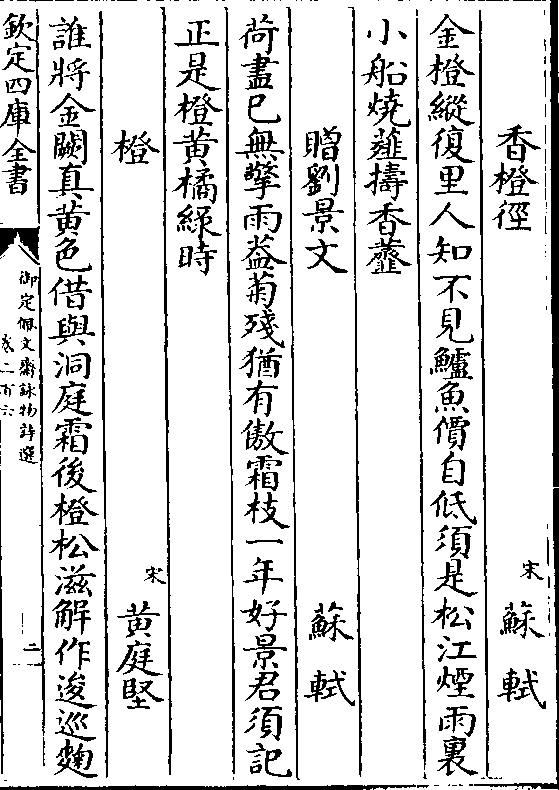 香橙徑
宋 蘇軾
金橙縱復里人知不見鱸魚價自低須是松江煙雨裏
小船燒薤擣香虀
贈劉景文
蘇軾
荷盡已無擎雨葢菊殘猶有傲霜枝一年好景君須記
正是橙黃橘綠時
橙
宋 黃庭堅
誰將金闕真黃色借與洞庭霜後橙松滋解作逡巡麴
欽定四庫全書
御定佩文齋詠物詩選
卷二百六
二